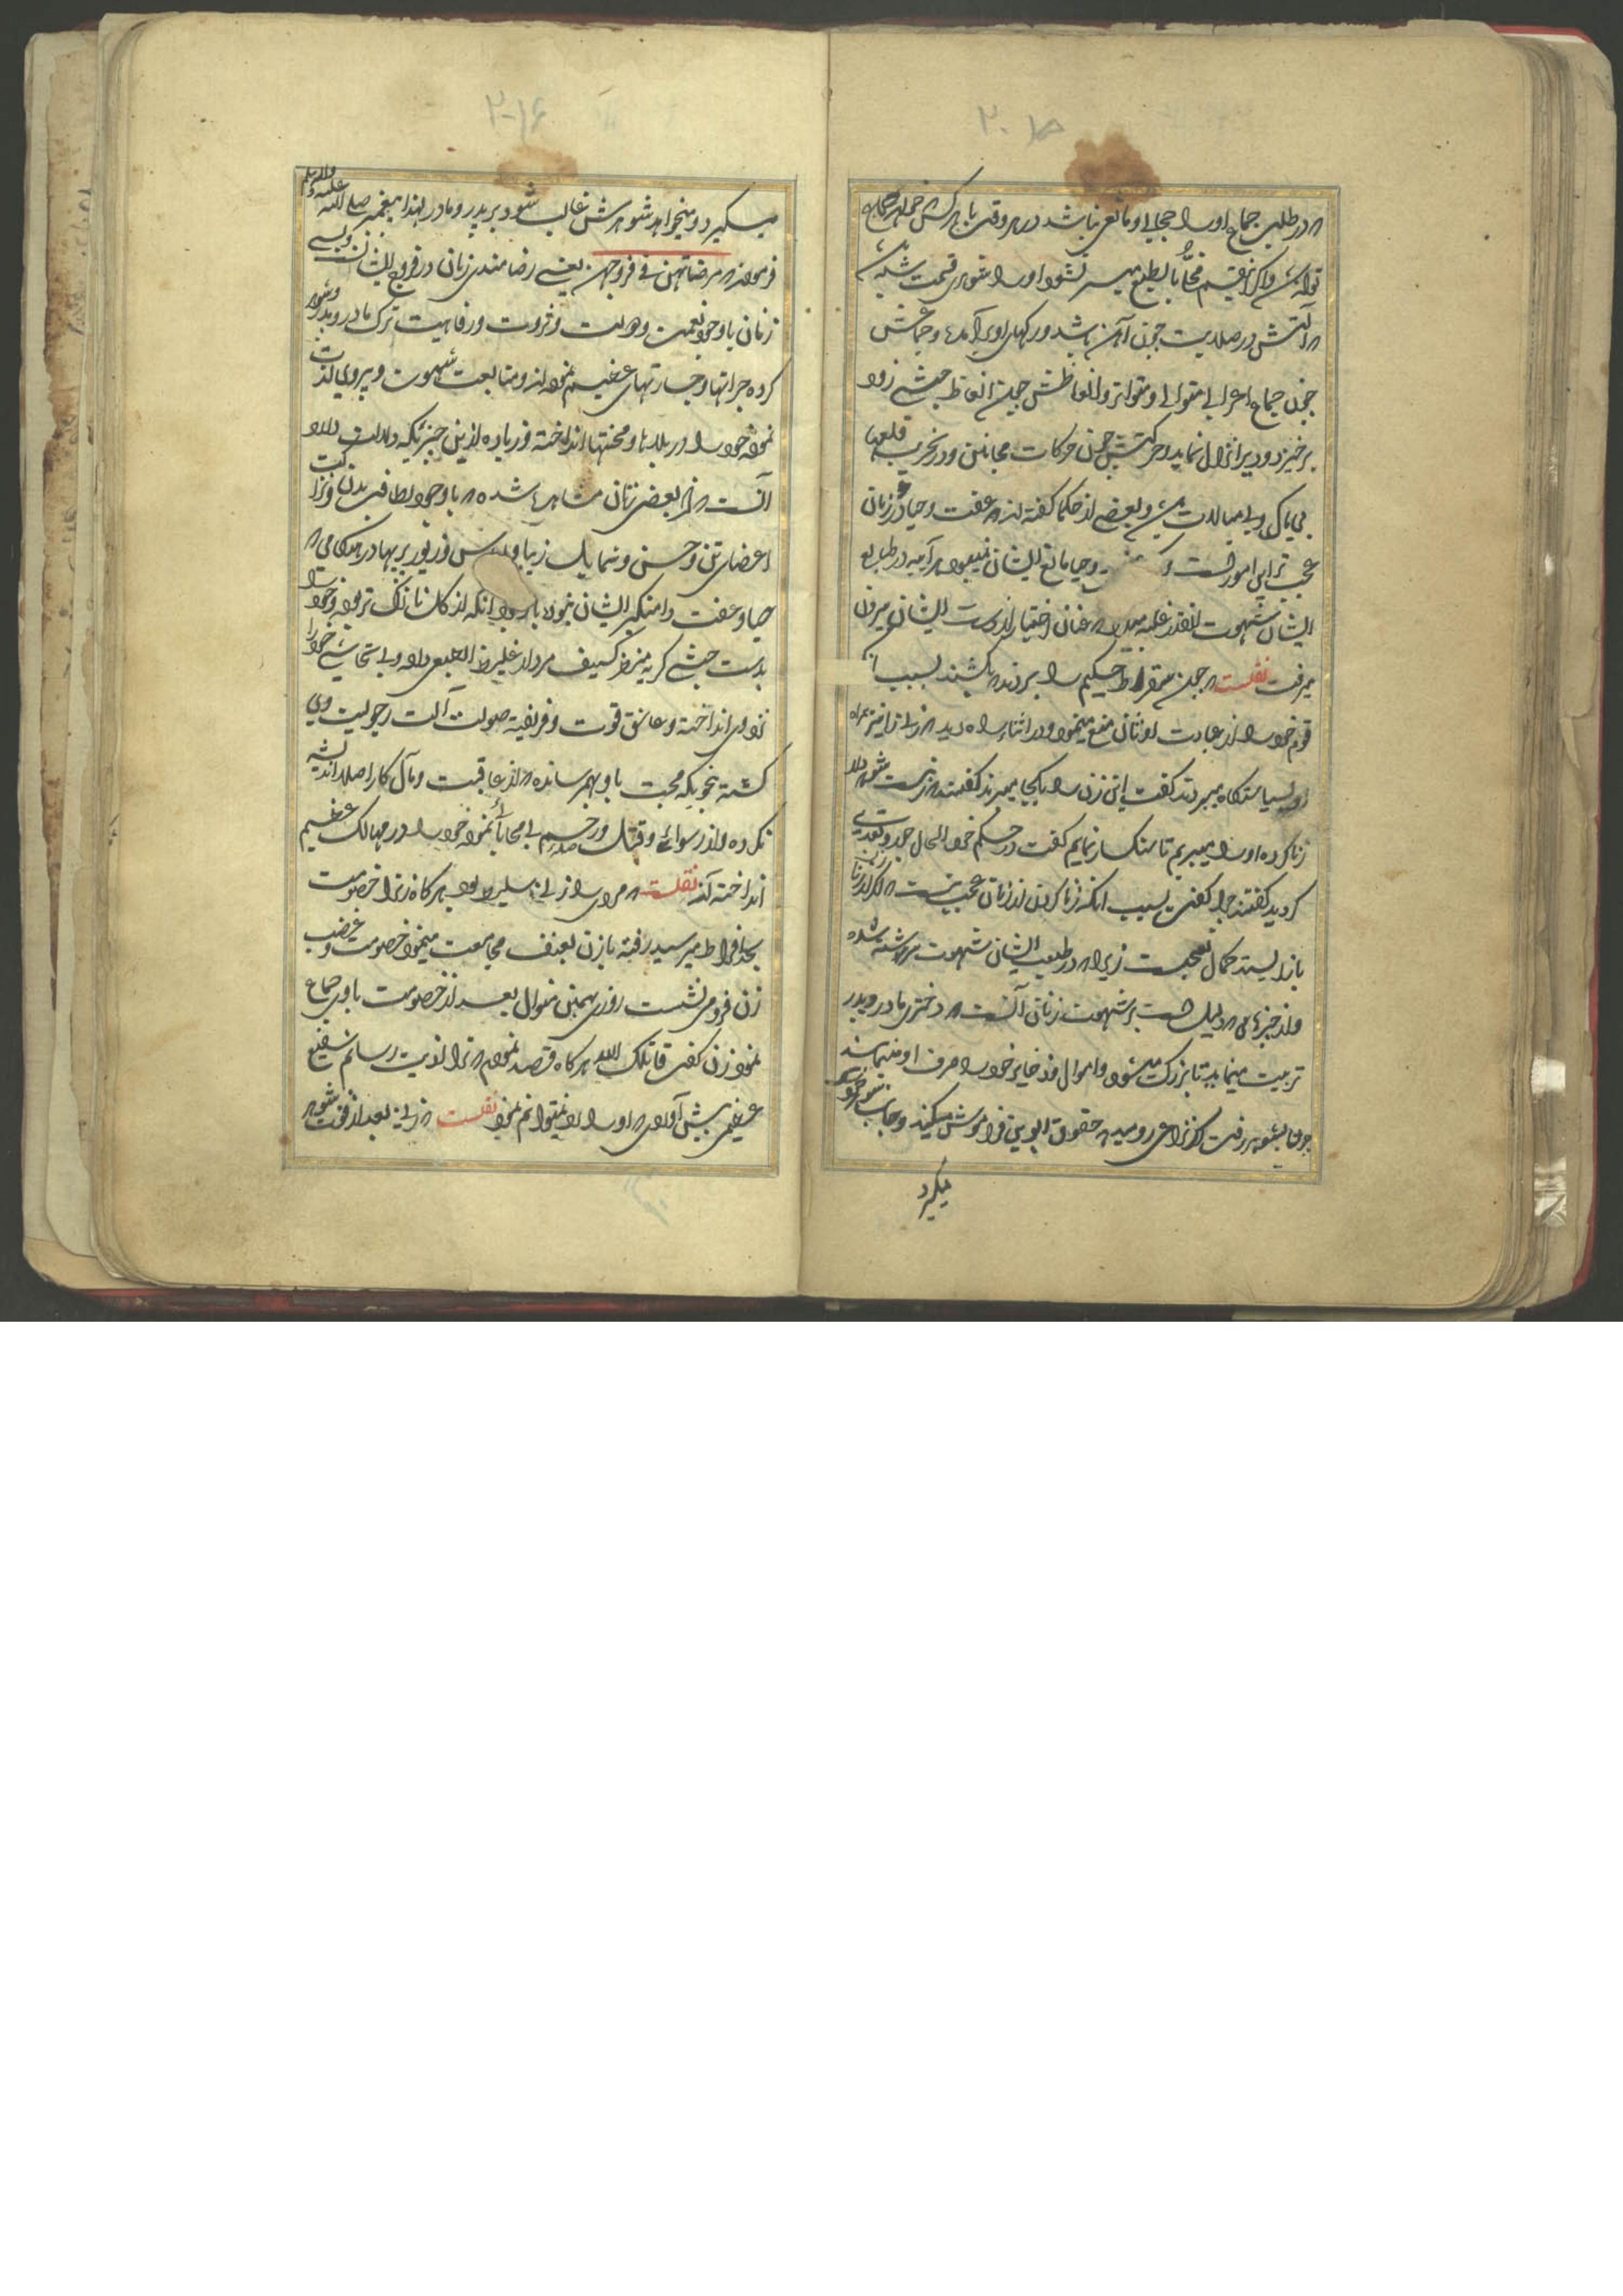 که در طلب جماع او را حجابی و مانعی نباشد در هر وقت با هر کس خواهد جماع
تواند و اگر از قسم بالطبع میسر نشود او را شوهری قسمت شود
که آلتش در صلابت چون آهن باشد و رکهای او برآمده و جماعش
چون جماع اعرابی متوالی و متواتر و انعاظش چون انعاظ حبشی زود
برخیزد و دیر انزال نماید و حرکتش چون حرکات مجانین و در تخریب قلعها
بی باک و بی مبالات و بعضی از حکما گفته اند که عفت و حیا در زنان
عجب ترین امور است و حیا مانع ایشان نمیبود هر آینه در طبایع
ایشان شهوت آنقدر غلبه میدارد که عنان اختیار از دست ایشان بیرون
میرفت نقلست که چون سقراط حکیم را بردند که بکشند بسبب آنکه
قوم خود را از عبادت اوثان منع مینمود در اثناء راه دید که زنی را نیز همراه
او بسیاستگاه میبردند گفت این زن را بکجا میبرند گفتند زنیست شوهردار
زنا کرده او را میبریم تا سنگسار نمایم گفت در حکم خود الحال جور و تعدی
کردید گفتند چرا گفت بسبب آنکه زنا کردن از زنان عجب نیست اگر از زنا
باز ایستند کمال تعجبست زیرا که در طبیعت ایشان شهوت سرشته شده
و از چیزهای که دلیل است بر شهوت زنان آنست که دختری مادر و پدر
تربیت مینماید تا بزرگ میشود و اموال و ذخایر خود را صرف او مینمایند
چون بشوهر رفت اگر نزاعی رو میدهد حقوق ابوین فراموش میکند و جانب شوهر خود
میگیرد
میگیرد و میخواهد شوهرش غالب شود بر پدر و مادر لهذا پیغمبر صلی الله علیه و آله و سلم
فرموده که مرضاتهن فی فروجهن یعنی رضامندی زنان در فروج ایشانست و بسی
زنان با وجود نعمت و دولت و ثروت و رفاهیت ترک مادر و پدر و شوهر
کرده جراتها و جسارتهای عظیم نموده اند و متابعت شهوت و پیروی لذت
نموده خود را در بلاها و محنتها انداخته و زیاده ازین چیزیکه دلالت دارد
آنست که از بعضی زنان مشاهده شده که با وجود لطافت بدن و نزاکت
اعضای تن و حسن و شمایل زیبا و لباس و زیور پربها در هنگامی که
حیا و عفت دامنگیر ایشان نبوده با وجود آنکه از گل نازک تر بوده خود را
بدست حبشی کریه منظر کثیف مردار غلیظ الطبع داده و بی تحاشی خود را
نزد وی انداخته و عاشق قوت و فریفته صولت آلت رجولیت وی
گشته بنحویکه محبت باو بهم رسانده که از عاقبت و مآل کار اصلا اندیشه
نکرده و از رسوائی و قتل و رجم بی محابا نموده خود را در مهالک عظیم
انداخته اند نقلست که مردی را زنی سلیطه بود هرگاه نزاع و خصومت
بحد افراط میرسید رفته با زن بعنف مجامعت مینمود خصومت و غضب
زن فرو می نشست روزی بهمین منوال بعد از خصومت با وی جماع
نمود زن گفت قاتلک الله هرگاه قصد نمودم که ترا اذیت رسانم شفیع
عظیمی پیش آوردی که او را رد نمیتوانم نمود نقلست که زنی بعد از فوت شوهر